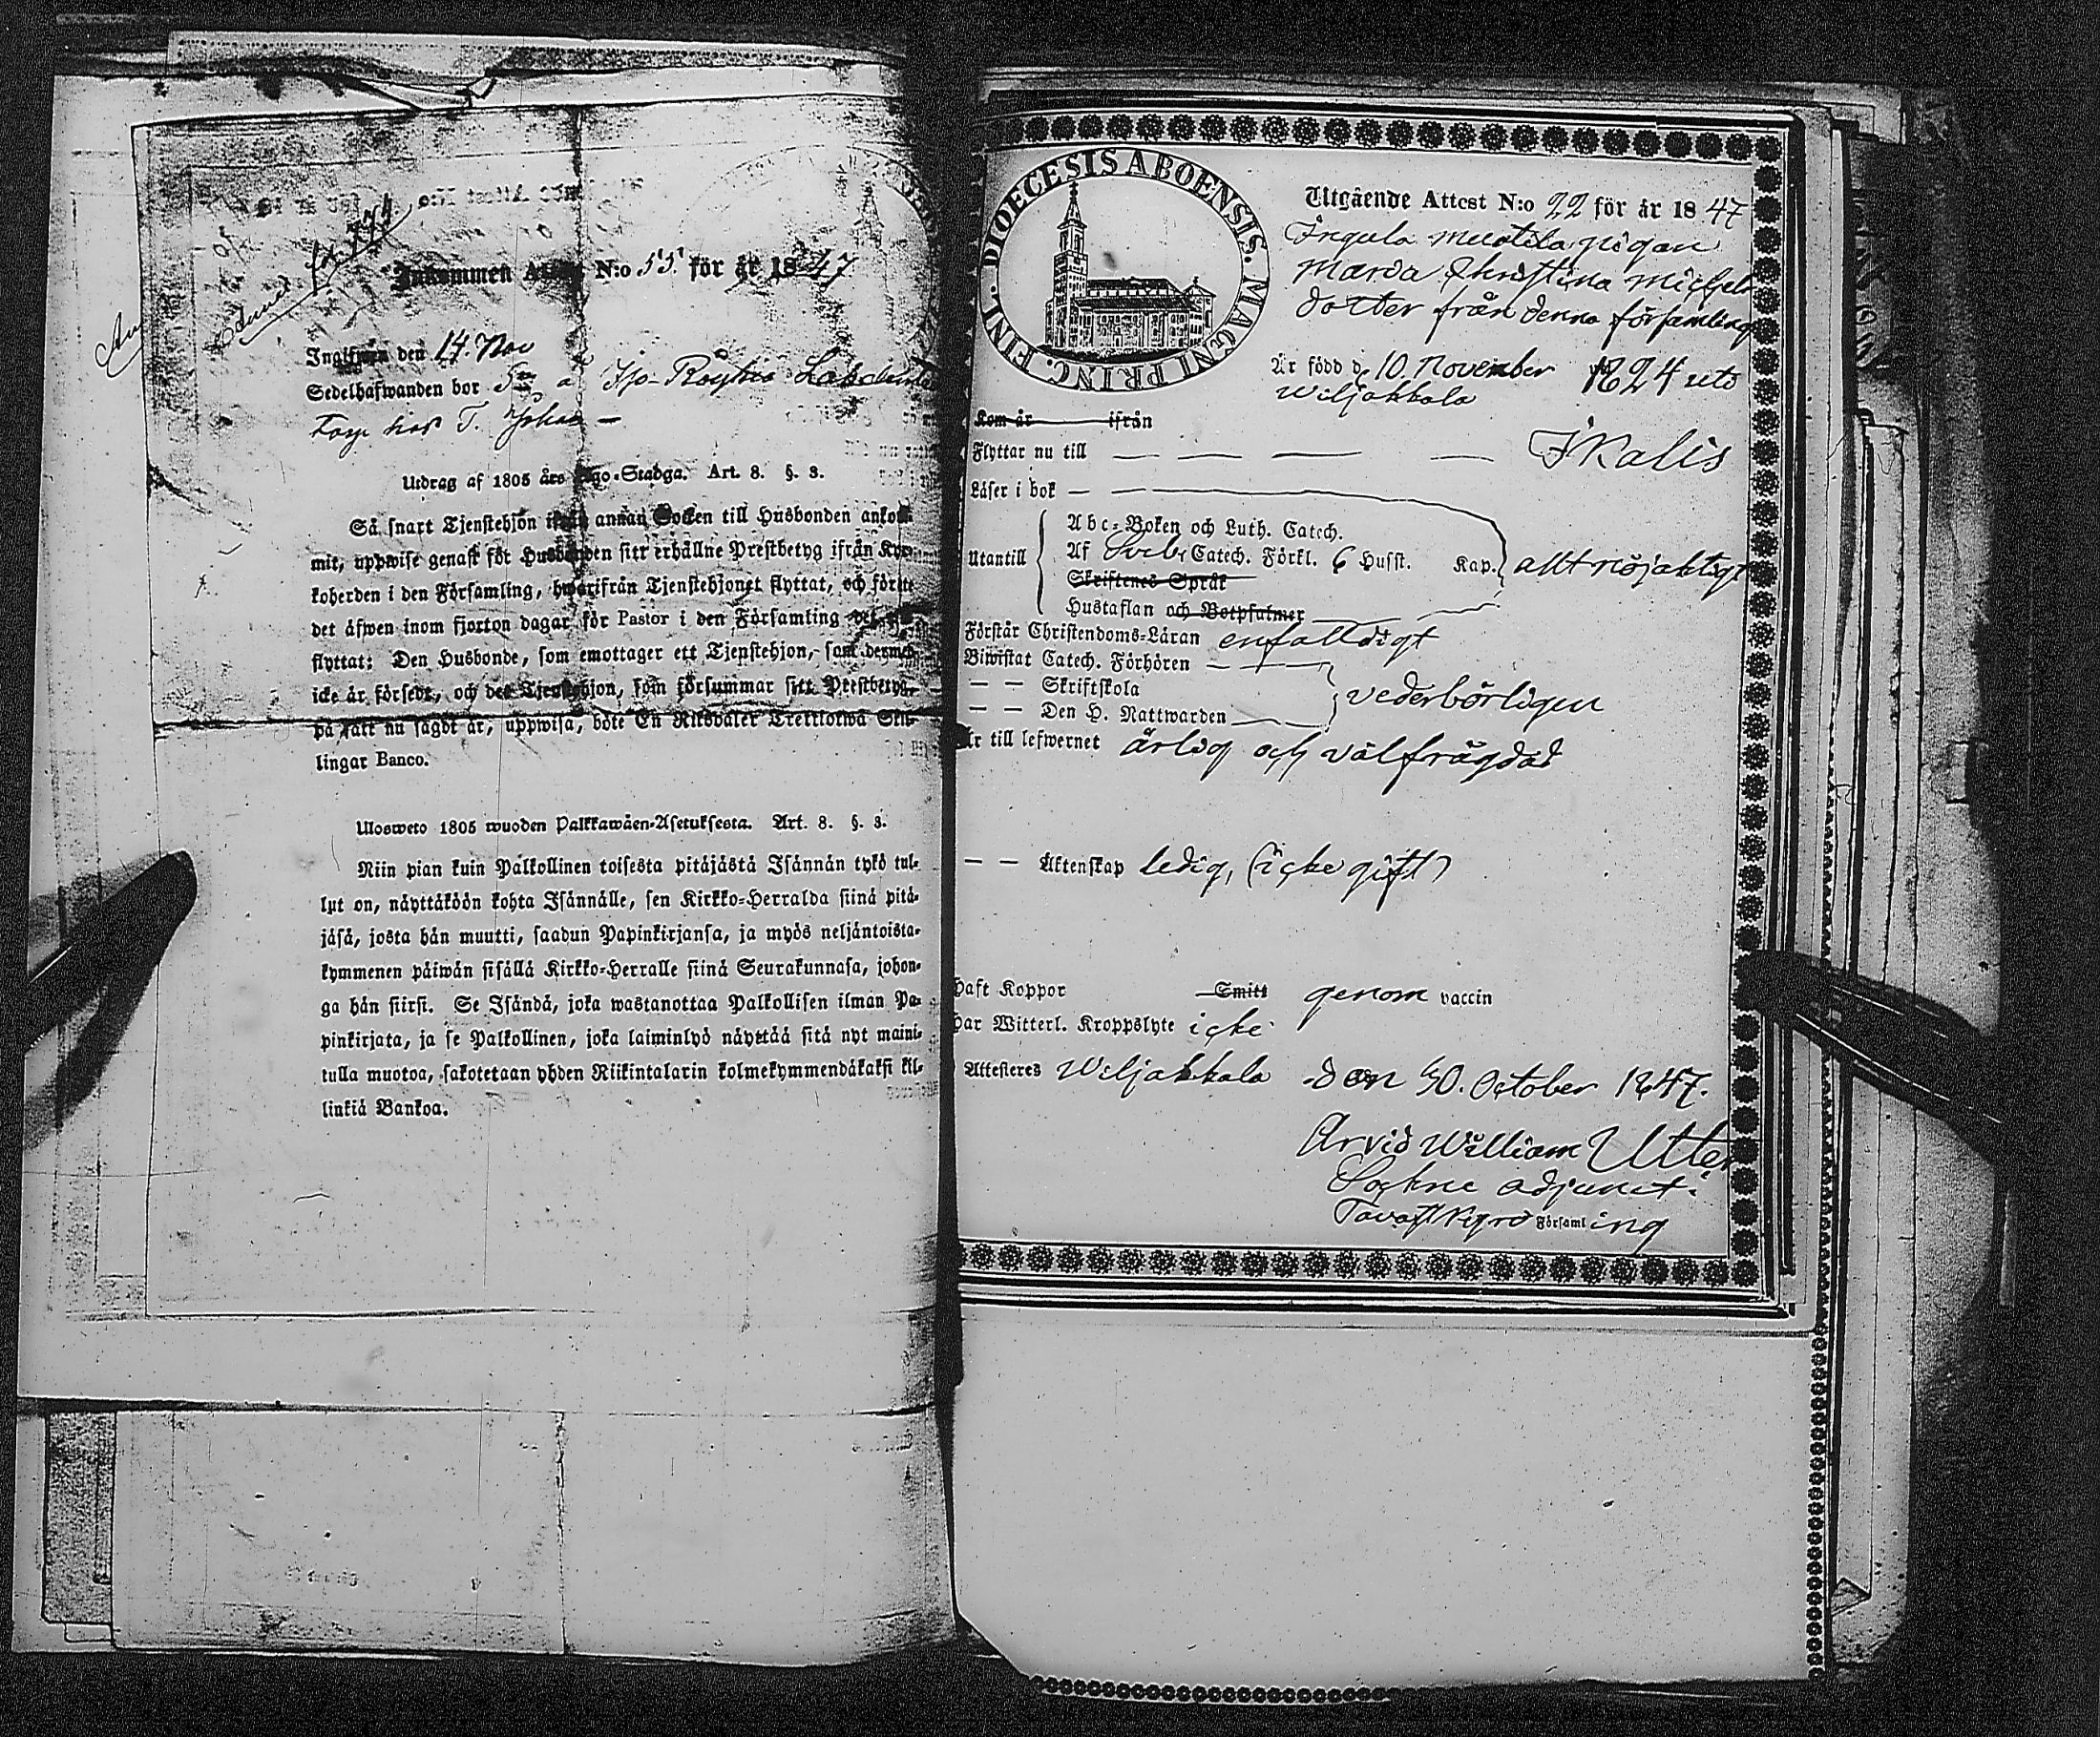 Inkommen Attest N:o 55. för år 1847
Ingifwen den 14. Nov
Sedelhafwanden bor
Torp hos T. Johan —
Utdrag af 1805 års Lego-Stadga. Art. 8. §. 3.
Så snart Tjenstehjon ifrån annan Socken till Husbonden ankom-
mit, uppwise genast för Husbonden sitt erhållne Prestbetyg ifrån Kyr-
koherden i den Församling, hwarifrån Tjenstehjonet flyttat, och förete
det äfwen inom fjorton dagar för Pastor i den Församling det
flyttat: Den Husbonde, som emottager ett Tjenstehjon, som dermed
icke är försedt, och det Tjenstehjon, som försummar sitt Prestbetyg,
på sätt nu sagdt är, uppwisa, böte En Riksdaler Trettiotwå Skil-
lingar Banco.
Ulosweto 1805 wuoden Palkkawäen-Asetuksesta. Art. 8. §. 3.
Niin pian kuin Palkollinen toisesta pitäjästä Isännän tykö tul-
lut on, näyttäköön kohta Isännälle, sen Kirkko-Herralda siinä pitä-
jäsä, josta hän muutti, saadun Papinkirjansa, ja myös neljäntoista-
kymmenen päiwän sisällä Kirkko-Herralle siinä Seurakunnasa, johon-
ga hän siirsi. Se Isändä, joka wastanottaa Palkollisen ilman Pa-
pinkirjata, ja se Palkollinen, joka laiminlyö näyttää sitä nyt maini-
tulla muotoa, sakotetaan yhden Riikintalarin kolmekymmendäkaksi kil-
linkiä Bankoa.
DIOECESIS ABOENSIS. MAGNI PRINC. FINL.
Utgående Attest N:o 22 för år 1847
Ingula Mustila pigan
Maria Christina Michels
dotter från denna församling
Är född d. 10. November 1824 uti
Wiljakkala
Kom år ifrån
Flyttar nu till — — — — Ikalis
Läser i bok —
Abc-Boken och Luth. Catech.
Utantill Af Sveb. Catech. Förkl. 6 Husst. Kap. allt nöjaktigt
Skriftenes Språk
Hustaflan och Botpsalmer
Förstår Christendoms-Läran enfalldigt
Biwistat Catech. Förhören
— — Skriftskola vederbörligen
— — Den H. Nattwarden
Är till lefwernet ärlig och välfrägdad
— — Äktenskap ledig, (icke gift)
Haft Koppor Smitt genom vaccin
Har Witterl. Kroppslyte icke
Attesteres Wiljakkala den 30. October 1847.
Arvid William Utter
Sockne adjunct.
Tavastkyro Församling